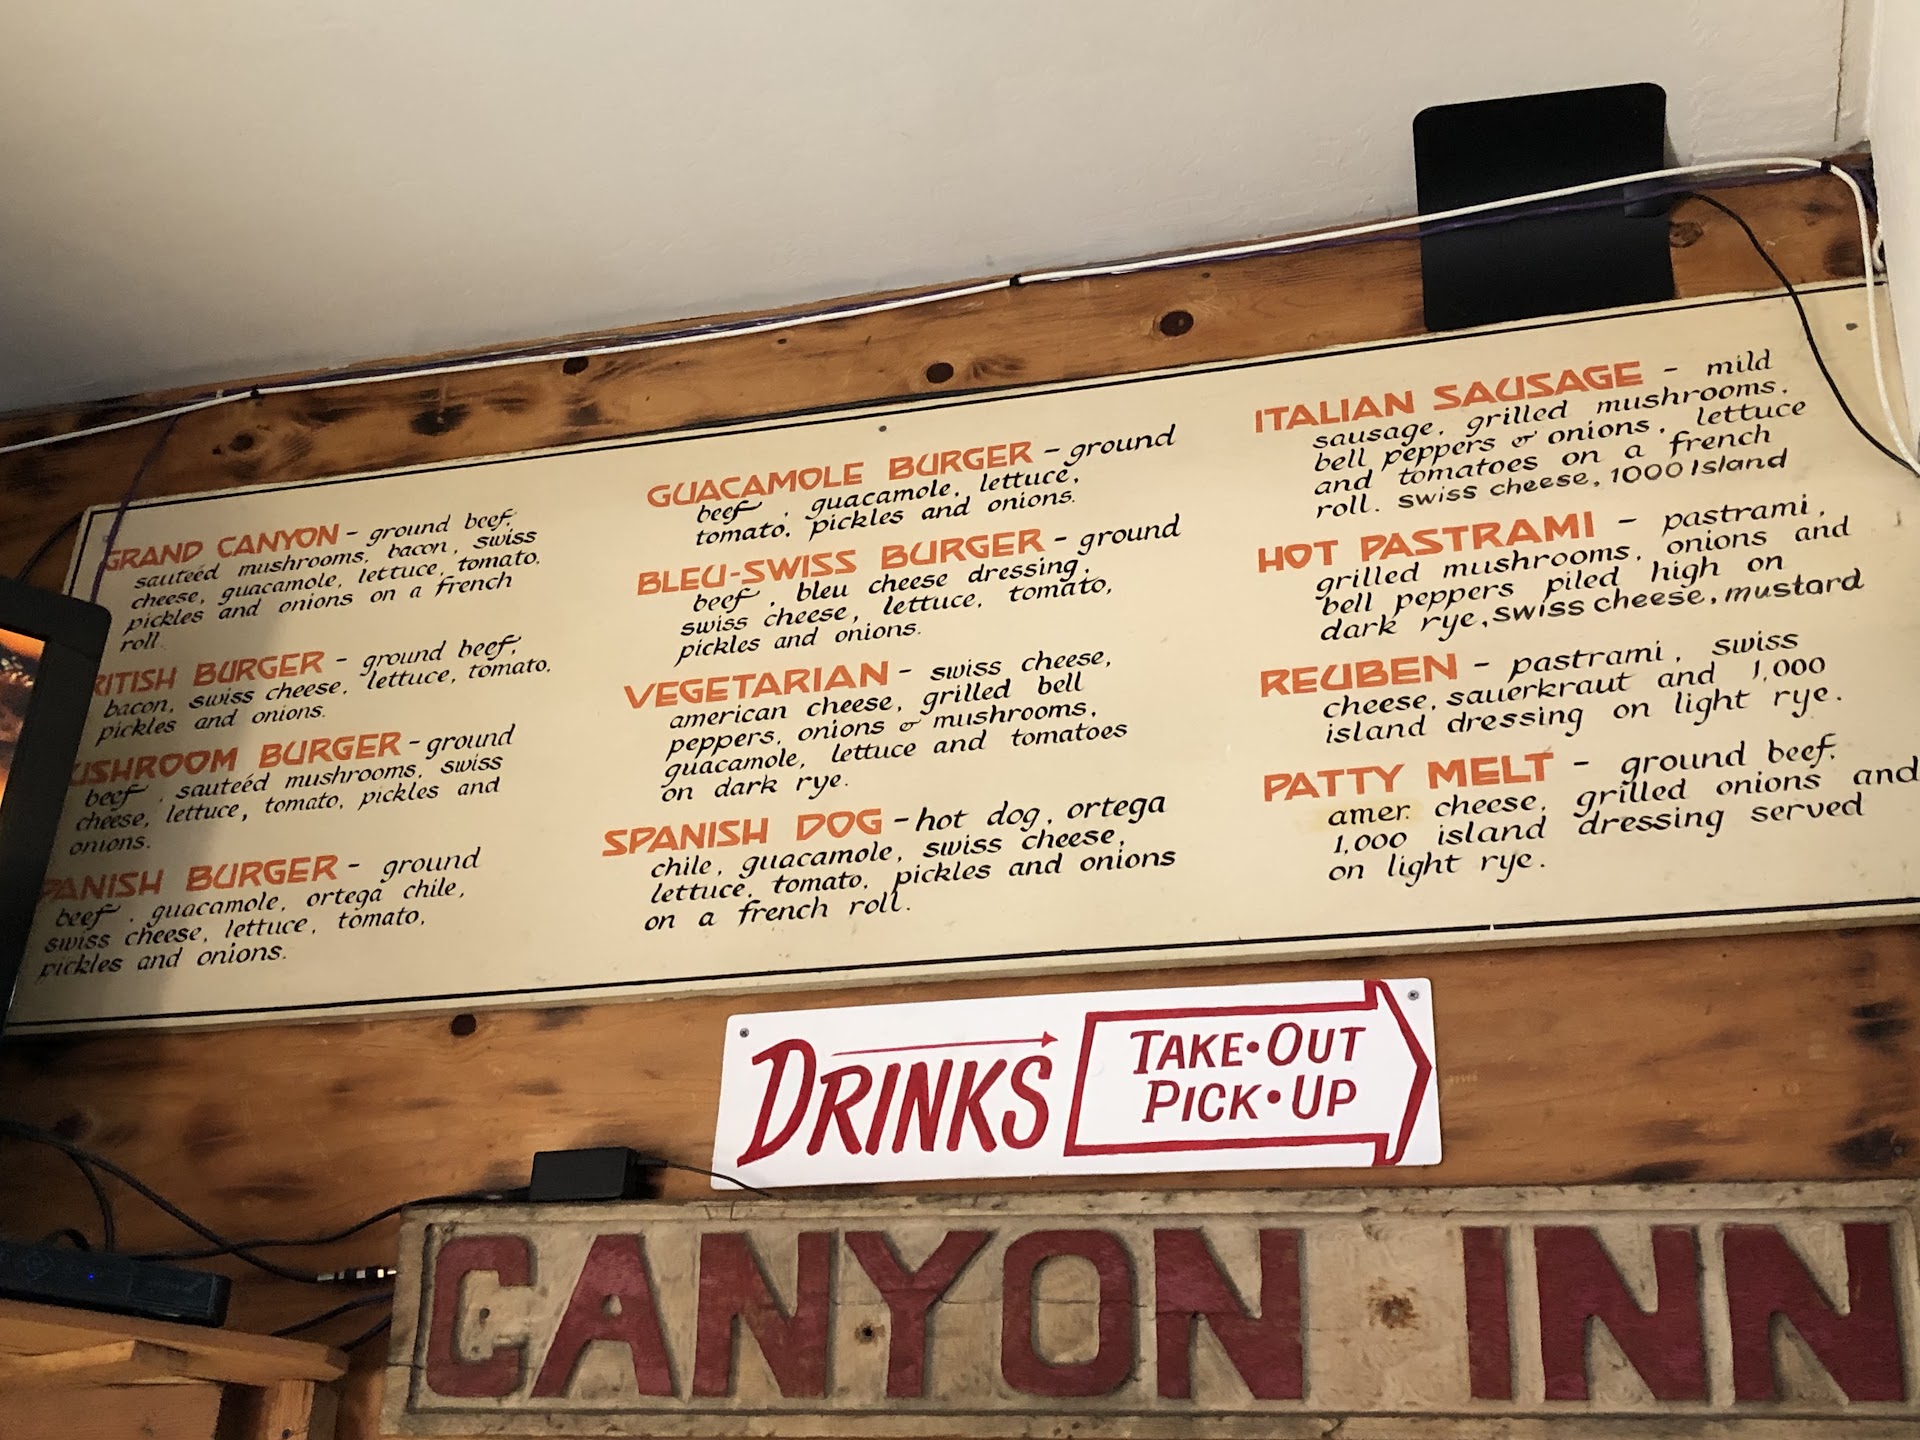 GRAND CANYON - ground beef,
sauteéd mushrooms, bacon, swiss
cheese, guacamole, lettuce, tomato,
pickles and onions on a french
roll.
RITISH BURGER - ground beef,
bacon, swiss cheese, lettuce, tomato,
pickles and onions.
USHROOM BURGER - ground
beef, sauteéd mushrooms, swiss
cheese, lettuce, tomato, pickles and
onions.
PANISH BURGER - ground
beef, guacamole, ortega chile,
swiss cheese, lettuce, tomato,
pickles and onions.
GUACAMOLE BURGER - ground
beef, guacamole, lettuce,
tomato, pickles and onions.
BLEU-SWISS BURGER - ground
beef, bleu cheese dressing,
swiss cheese, lettuce, tomato,
pickles and onions.
VEGETARIAN - swiss cheese,
american cheese, grilled bell
peppers, onions & mushrooms,
guacamole, lettuce and tomatoes
on dark rye.
SPANISH DOG - hot dog, ortega
chile, guacamole, swiss cheese,
lettuce, tomato, pickles and onions
on a french roll.
ITALIAN SAUSAGE - mild
sausage, grilled mushrooms,
bell peppers & onions, lettuce
and tomatoes on a french
roll. swiss cheese, 1000 Island
HOT PASTRAMI - pastrami,
grilled mushrooms, onions and
bell peppers piled high on
dark rye, swiss cheese, mustard
REUBEN - pastrami, swiss
cheese, sauerkraut and 1,000
island dressing on light rye.
PATTY MELT - ground beef,
amer. cheese, grilled onions and
1,000 island dressing served
on light rye.
DRINKS
TAKE•OUT
PICK•UP
CANYON INN